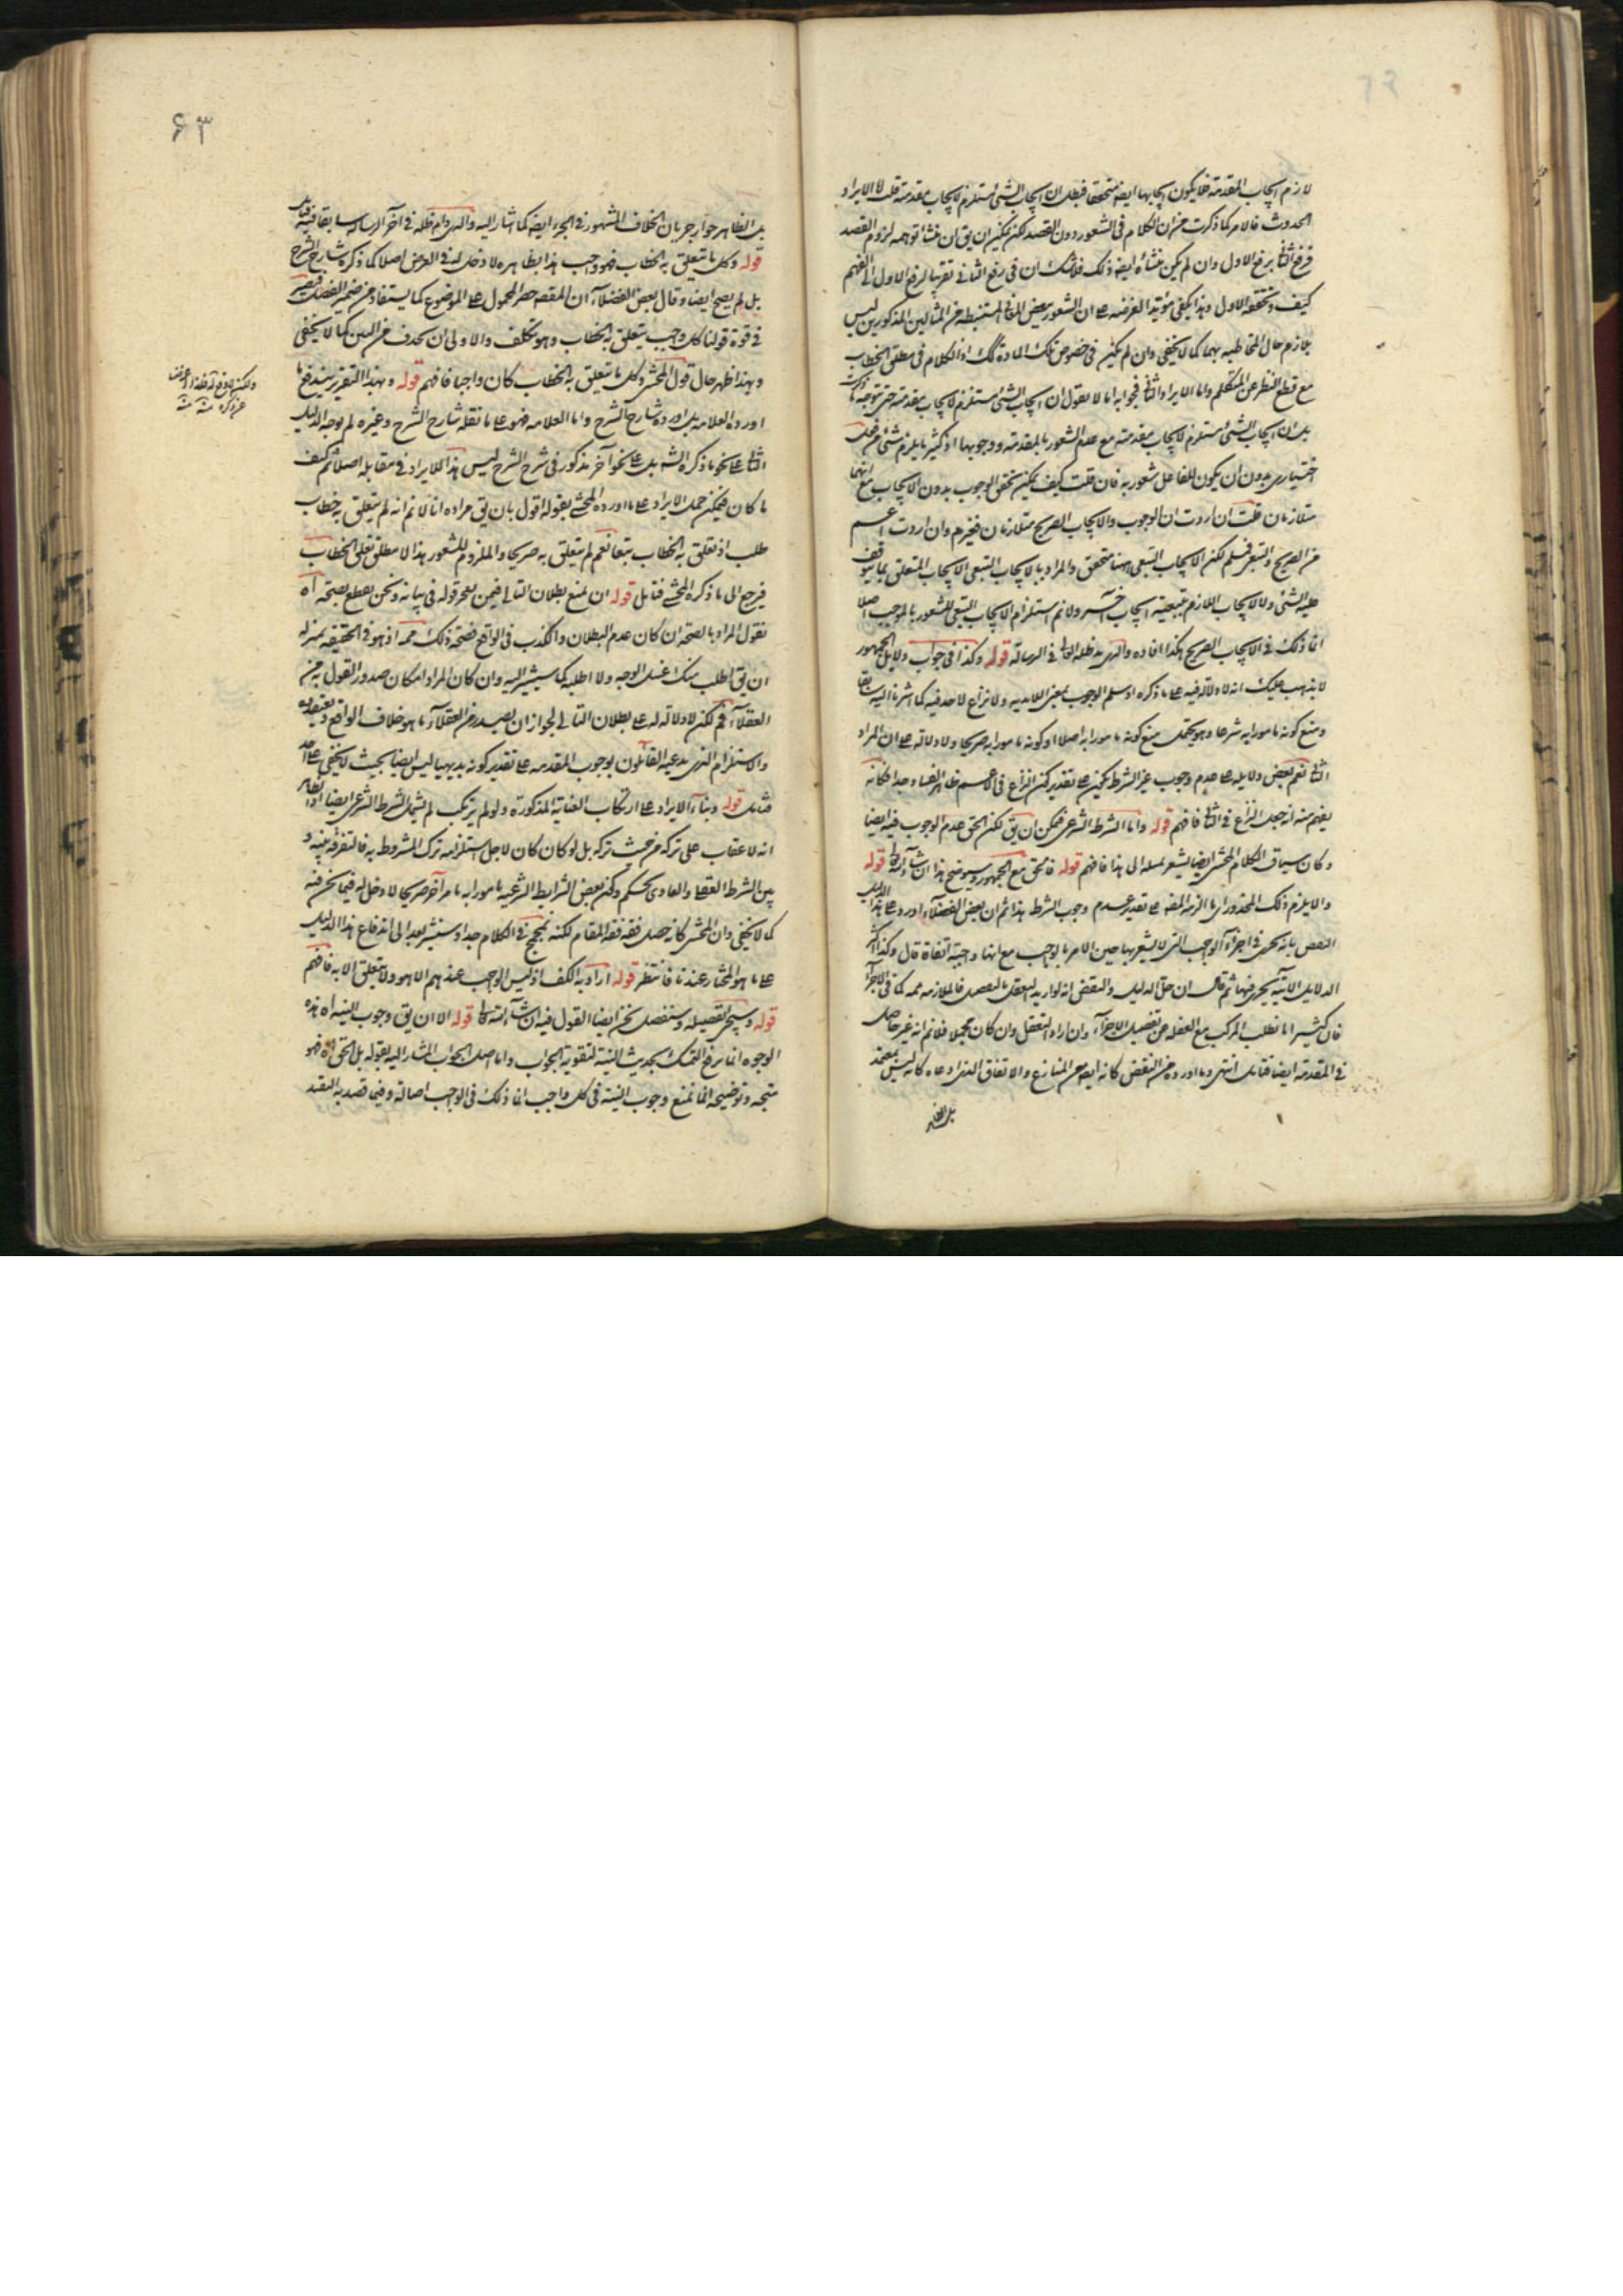 لازم ايجاب المقدمة فلا يكون ايجابها ايضا متحققا فبطل ان ايجاب الشئ مستلزم لايجاب مقدمته قلت لا الايراد
الحدوث فالامر كما ذكرت من ان الكلام في الشعور دون القصد لكن يمكن ان يق ان منشأ توهمه لزوم القصد
فرفع الثاني برفع الاول وان لم يكن منشأه ايضه ذلك فلا شك ان في رفع الثاني تقريبا لرفع الاول الى الفهم
كيف وتحققه الاول وهذا يكفي مؤيدا لغرضه على ان الشعور ببعض المعاني المستنبطة من المثالين المذكورين ليس
بلازم حال المخاطبة بهما كما لا يخفى وان لم يكن في خصوص تلك المادة كك اذ الكلام في مطلق الخطاب
مع قطع النظر عن المتكلم واما الايراد الثاني فجوابه انا لا نقول ان ايجاب الشئ مستلزم لايجاب مقدمته حتى يتوجه ما ذكرت
بل ان ايجاب الشئ مستلزم لايجاب مقدمته مع عدم الشعور بالمقدمة ووجوبها اذ كثيرا ما يلزم شئ من فعل
اختياري بدون ان يكون للفاعل شعور به فان قلت كيف يمكن تحقق الوجوب بدون الايجاب مع انهما
متلازمان قلت ان اردت ان الوجوب والايجاب الصريح متلازمان فغير م وان اردت اعم
من الصريح والتبعي فمسلم لكن الايجاب التبعي ههنا متحقق والمراد بالايجاب التبعي الايجاب المتعلق بما يتوقف
عليه الشئ ولا الايجاب اللازم بتبعية ايجاب آخر ولانم استلزام الايجاب التبعي للشعور بالموجب اصلا
انما ذلك في الايجاب الصريح هكذا افاده والدي مدظله العالي في الرسالة قوله وكذا في جواب دلايل الجمهور
لا يذهب عليك انه لا دلالة فيه على ما ذكره اذ سلم الوجوب بمعنى اللابدية ولا نزاع لاحد فيه كما اشرنا اليه سابقا
ومنع كونه مامورا به شرعا وهو يحتمل منع كونه مامورا به اصلا او كونه مامورا به صريحا ولا دلالة على ان المراد
الثاني نعم بعض دلايله على عدم وجوب غير الشرط يمكن على تقدير كون النزاع في الاعم
يفهم منه انه جعل النزاع في الثاني فافهم قوله واما الشرط الشرعي فيمكن ان يق لكن الحق عدم الوجوب فيه ايضا
وكان سياق الكلام المحشي ايضا يشعر بميله الى هذا فافهم قوله فالحق مع الجمهور وسيوضح هذا ان شاء الله تعالى قوله
والا يلزم ذلك المحذور اي ما الزمه المصنف على تقدير عدم وجوب الشرط هذا ثم ان بعض الفضلاء اورد على هذا الدليل
النقض بانه يجري في اجزاء الواجب التي لا يشعر بها حين الامر بالواجب مع انها واجبة اتفاقا قال وكذا اكثر
الدلايل الآتية يجري فيها ثم قال ان حل الدليل والنقض انه لو اريد التعقل بالتفصيل فالملازمة ممه كما في الاجزاء
فان كثيرا ما نطلب المركب مع الغفلة عن تفصيل الاجزاء وان اراد التعقل وان كان مجملا فلانم انه غير حاصل
في المقدمة ايضا فتامل انتهى وما اورده من النقض كانه ايضه من المتنازع والاتفاق الذي ادعاه كانه ليس بمعتمد
بل الظاهر
۶۳
بل الظاهر جواز جريان الخلاف المشهور في الجزء ايضه كما اشار اليه والدي دام ظله في آخر الرسالة سابقا فيه فتامل
قوله وكل ما يتعلق به الخطاب فهو واجب هذا بظاهره لا دخل له في الغرض اصلا كما ذكره شارح الشرح
بل لم يصح ايضا وقال بعض الفضلاء ان المقصد حصر المحمول على الموضوع كما يستفاد من ضمير الفصل فيصير
في قوة قولنا كل واجب يتعلق به الخطاب وهو تكلف والاولى ان يحذف من البين كما لا يخفى
وبهذا ظهر حال قول المحشي وكل ما يتعلق به الخطاب كان واجبا فافهم قوله وبهذا التقرير يندفع ما
اورده العلامة بل اورده شارح الشرح واما العلامة فهو على ما نقله شارح الشرح وغيره لم يوجه الدليل
الثاني على نحو ما ذكره الش بل على نحو آخر مذكور في شرح الشرح ليس هذا الايراد في مقابله اصلا ثم كيف
ما كان فيمكن حمل الايراد على ما اورده المحشي بقوله اقول بان يق مراده انا لانم انه لم يتعلق به خطاب
طلب اذ تعلق به الخطاب تبعا نعم لم يتعلق به صريحا والملزوم للشعور هذا لا مطلق تعلق الخطاب
فيرجع الى ما ذكره المحشي فتامل قوله ان نمنع بطلان التالي قوله في بيانه ونحن نقطع بصحته اه
نقول المراد بالصحة ان كان عدم البطلان والكذب في الواقع فصحة ذلك ممه اذ هو في الحقيقة بمنزلة
ان يق اطلب منك غسل الوجه ولا اطلبه كما سيشير اليه وان كان المراد امكان صدور القول به من
العقلاء فم لكن لا دلالة له على بطلان التالي لجواز ان يصدر من العقلاء ما هو خلاف الواقع
والاستلزام الذي يدعيه القائلون بوجوب المقدمة على تقدير كونه بديهيا ليس ايضا بحيث لا يخفى على احد
فتامل قوله وبناء الايراد على ارتكاب العناية المذكورة ولو لم يرتكب لم يشمل الشرط الشرعي ايضا اذ الظاهر
انه لا عقاب على تركه من حيث تركه بل لو كان كان لاجل استلزامه ترك المشروط به فالتفرقة بينه و
بين الشرط العقلي والعادي تحكم وكون بعض الشرايط الشرعية مامورا به بامر آخر صريحا لا دخل له فيما نحن فيه
كما لا يخفى وان المحشي كانه حصل فقه فقه المقام لكنه تمجمج في الكلام جدا وسنشير بعد الى اندفاع هذا الدليل
على ما هو المختار عندنا فانتظر قوله اراد به الكف اذ ليس الواجب عندهم الا هو ولا يتعلق الا به فافهم
قوله وسيجئ تفصيله وسنفصل نحن ايضا القول فيه ان شاء الله تعالى قوله الا ان يق وجوب النية اه هذه
الوجوه انما يرفع التمسك بحديث النية لتقوية الجواب واما اصل الجواب المشار اليه بقوله بل الحق اه فهو
متجه وتوضيحه انما نمنع وجوب النية في كل واجب انما ذلك في الواجب اصالة وفيما قصد به التعبد